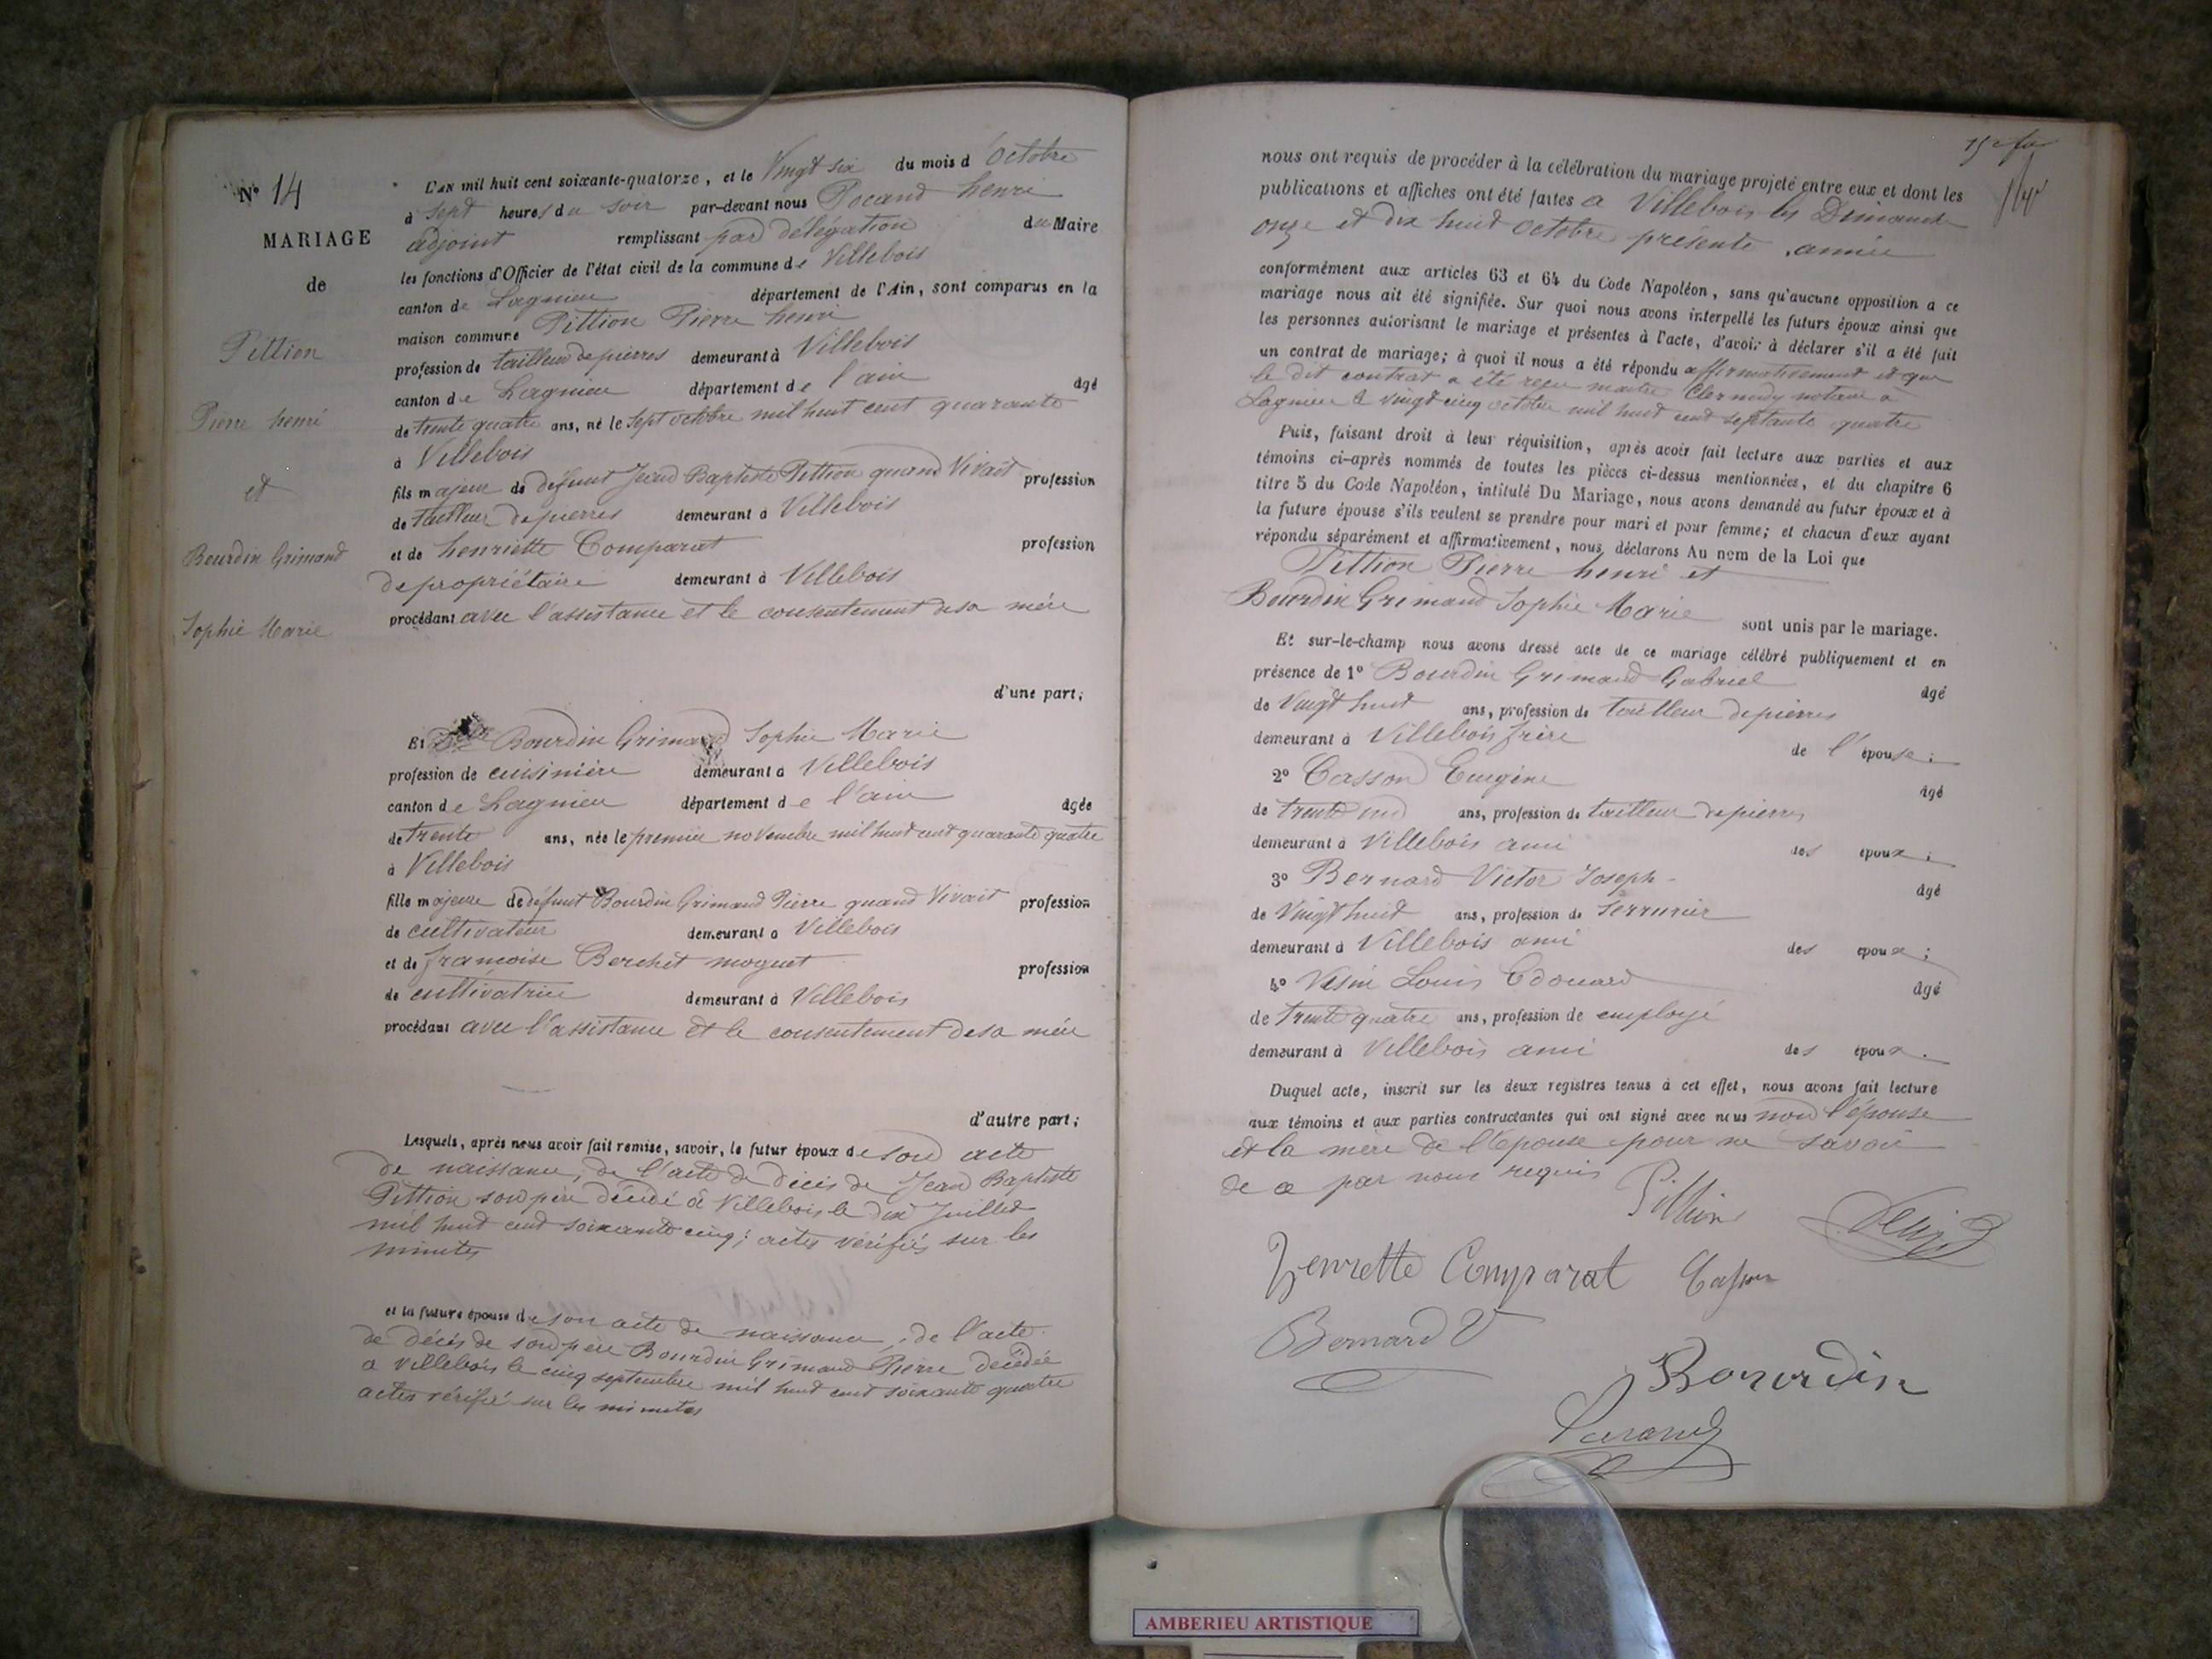 N° 14
MARIAGE
de
Pittion
Pierre henri
et
Bourdin Grimaud
Sophie Marie
L'AN mil huit cent soixante-quatorze, et le Vingt six du mois d'Octobre
à sept heures du soir par-devant nous Pocand henri
adjoint remplissant par délégation du Maire
les fonctions d'Officier de l'état civil de la commune de Villebois
canton de Lagnieu département de l'Ain, sont comparus en la
maison commune Pittion Pierre henri
profession de tailleur de pierres demeurant à Villebois
canton de Lagnieu département de l'ain âgé
de trente quatre ans, né le sept octobre mil huit cent quarante
à Villebois
fils majeur de defunt Jean Baptiste Pittion quand Vivait profession
de tailleur de pierres demeurant à Villebois
et de henriette Comparat profession
de propriétaire demeurant à Villebois
procédant avec l'assistance et le consentement de sa mère
d'une part;
Et Bourdin Grimaud Sophie Marie
profession de cuisinière demeurant à Villebois
canton de Lagnieu département de l'ain âgée
de trente ans, née le premier novembre mil huit cent quarante quatre
à Villebois
fille majeure de défunt Bourdin Grimaud Pierre quand Vivait profession
de cultivateur demeurant à Villebois
et de francoise Berchet moguet profession
de cultivatrice demeurant à Villebois
procédant avec l'assistance et le consentement de sa mère
d'autre part;
Lesquels, après nous avoir fait remise, savoir, le futur époux de son acte
de naissance, de l'acte de décès de Jean Baptiste
Pittion son père décédé à Villebois le dix Juillet
mil huit cent soixante cinq; actes vérifiés sur les
minutes
et la future épouse de son acte de naissance, de l'acte
de décès de son père Bourdin Grimaud Pierre décédé
a Villebois le cinq septembre mil huit cent soixante quatre
actes vérifié sur les minutes
nous ont requis de procéder à la célébration du mariage projeté entre eux et dont les
publications et affiches ont été faites a Villebois les Dimanche
onze et dix huit Octobre présente année
conformément aux articles 63 et 64 du Code Napoléon, sans qu'aucune opposition a ce
mariage nous ait été signifiée. Sur quoi nous avons interpellé les futurs époux ainsi que
les personnes autorisant le mariage et présentes à l'acte, d'avoir à déclarer s'il a été fait
un contrat de mariage; à quoi il nous a été répondu affirmativement et que
le dit contrat a été reçu maitre notaire a
Lagnieu le vingt cinq octobre mil huit cent septante quatre
Puis, faisant droit à leur réquisition, après avoir fait lecture aux parties et aux
témoins ci-après nommés de toutes les pièces ci-dessus mentionnées, et du chapitre 6
titre 5 du Code Napoléon, intitulé Du Mariage, nous avons demandé au futur époux et à
la future épouse s'ils veulent se prendre pour mari et pour femme; et chacun d'eux ayant
répondu séparément et affirmativement, nous déclarons Au nom de la Loi que
Pittion Pierre henri et
Bourdin Grimaud Sophie Marie sont unis par le mariage.
Et sur-le-champ nous avons dressé acte de ce mariage célébré publiquement et en
présence de 1° Bourdin Grimaud Gabriel âgé
de Vingt huit ans, profession de tailleur de pierres
demeurant à Villebois frère de l'épouse;
2° Casson Eugène âgé
de trente un ans, profession de tailleur de pierres
demeurant à Villebois ami des époux;
3° Bernard Victor Joseph âgé
de Vingt huit ans, profession de Serrurier
demeurant à Villebois ami des époux;
4° Vesin Louis Edouard âgé
de trente quatre ans, profession de employé
demeurant à Villebois ami des époux.
Duquel acte, inscrit sur les deux registres tenus à cet effet, nous avons fait lecture
aux témoins et aux parties contractantes qui ont signé avec nous non l'épouse
et la mère de l'épouse pour ne savoir
de ce par nous requis
Pittion
Henriette Comparat Casson
Bernard V
Bourdin
AMBERIEU ARTISTIQUE